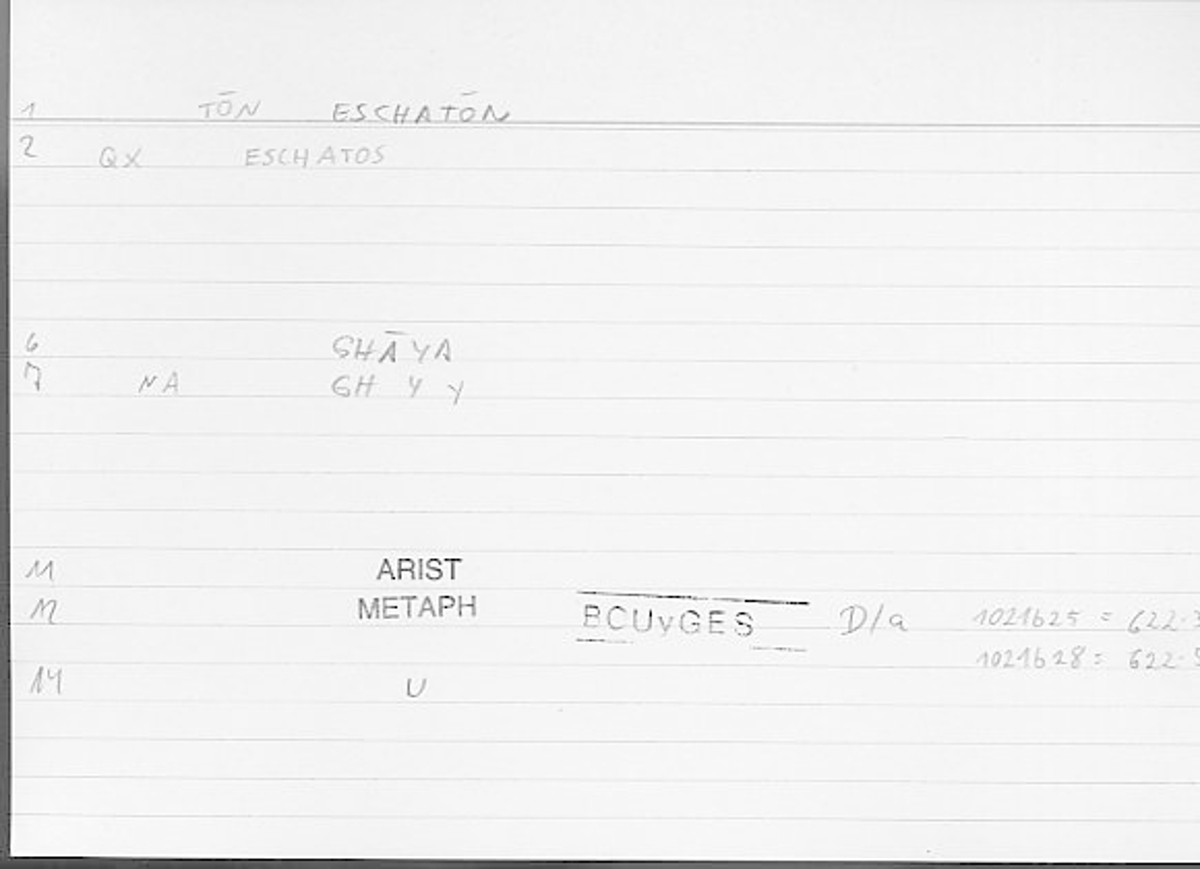 1 TŌN ESCHATŌN
2 QX ESCHATOS
6 GHĀYA
7 NA GH Y Y
11 ARIST
12 METAPH BCUyGES D/a 1021b25 = 622.
1021b28 = 622.
14 U